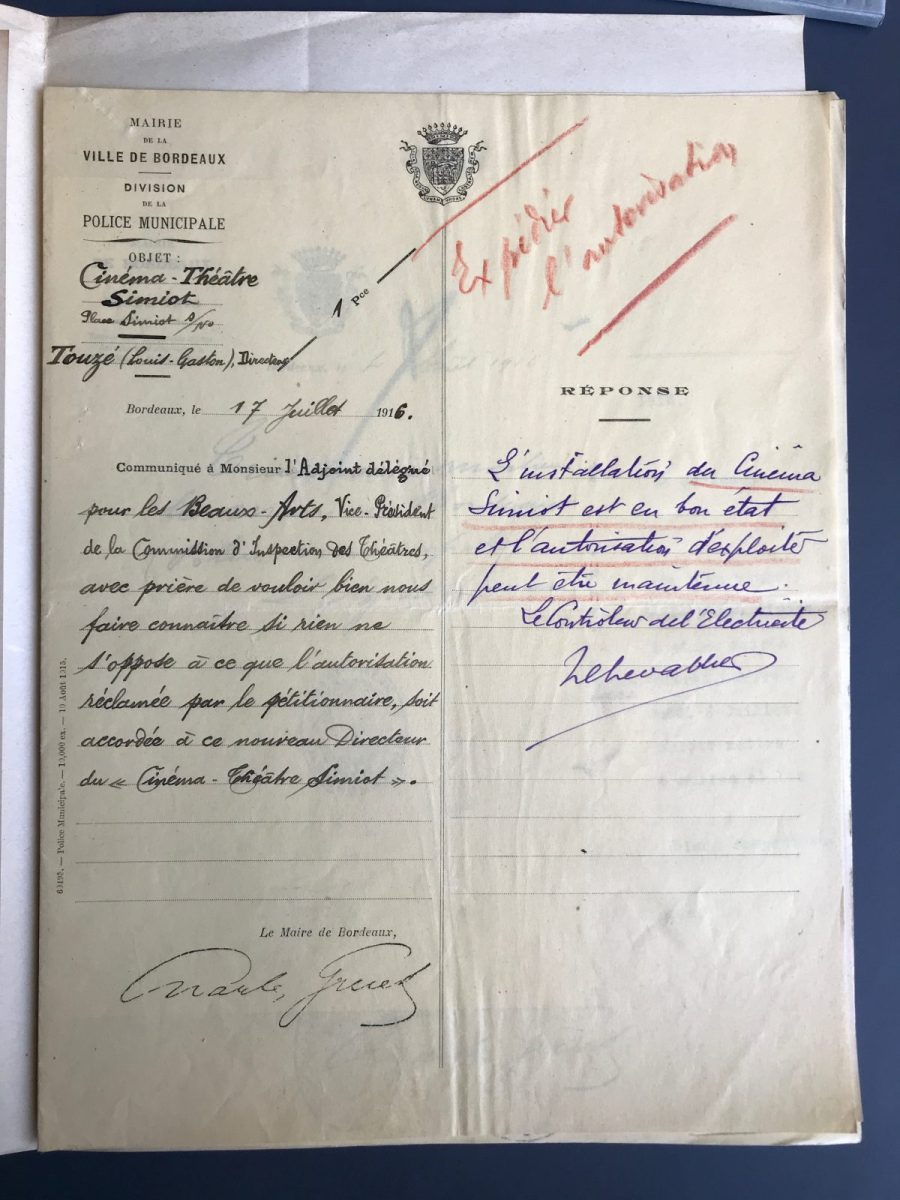 MAIRIE
DE LA
VILLE DE BORDEAUX
DIVISION
DE LA
POLICE MUNICIPALE
OBJET :
Cinéma-Théâtre
Simiot
Place Simiot s/No
Touzé (Louis-Gaston), Directeur
1 Pce
Expédier
l'autorisation
Bordeaux, le 17 Juillet 1916.
Communiqué à Monsieur l'Adjoint délégué
pour les Beaux-Arts, Vice-Président
de la Commission d'Inspection des Théâtres,
avec prière de vouloir bien nous
faire connaître si rien ne
s'oppose à ce que l'autorisation
réclamée par le pétitionnaire, soit
accordée à ce nouveau Directeur
du « Cinéma-Théâtre Simiot ».
Le Maire de Bordeaux,
Charles Gruet
RÉPONSE
L'installation du Cinéma
Simiot est en bon état
et l'autorisation d'exploité
peut être maintenue.
Le Contrôleur de l'Electricité
60195. — Police Municipale. — 10,000 ex. — 10 Août 1915.